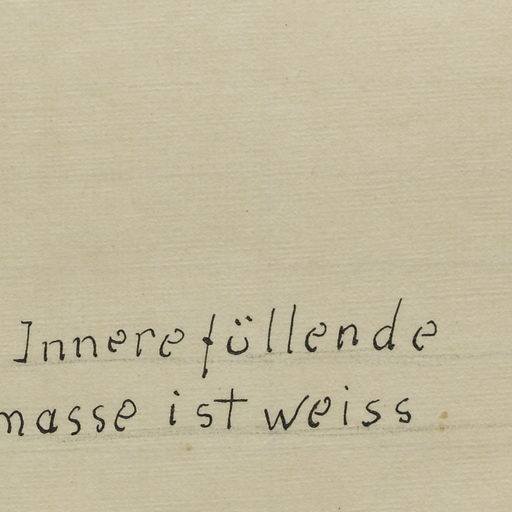 Innere füllende
masse ist weiss